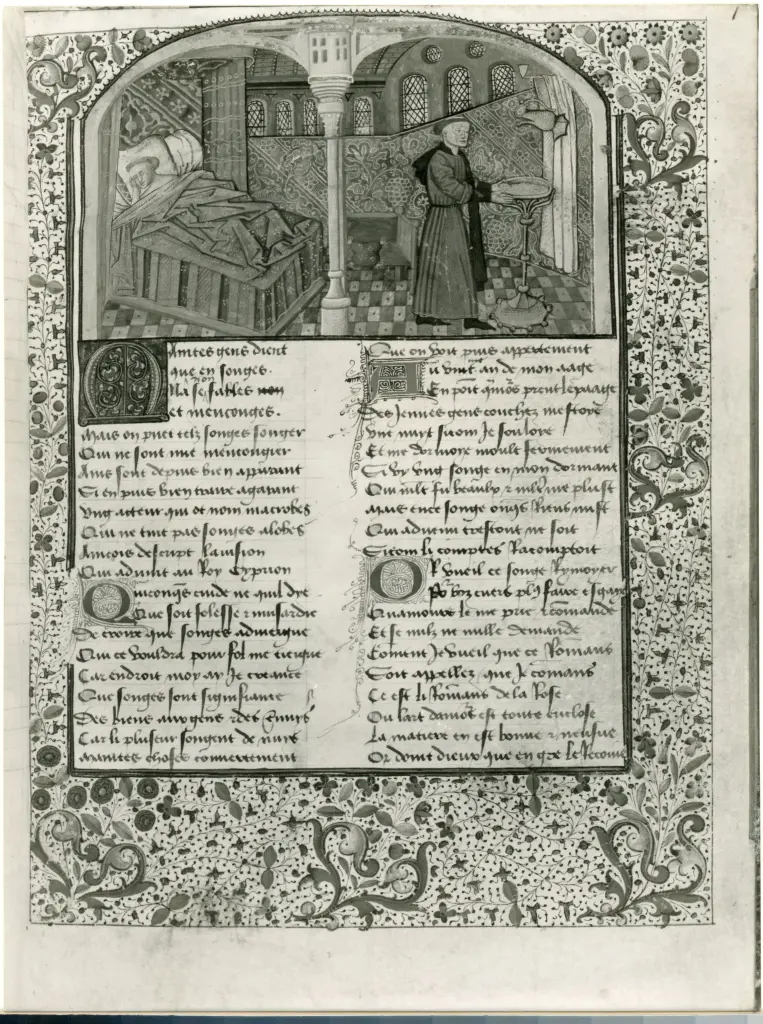 Maintes gens dient
que en songes
Na se fables non
et menconges.
Mais on puet telz songes songer
Qui ne sont mie mencongier
Ains sont depuis bien apparant
Si en puis bien traire a garant
Ung acteur qui ot nom macrobes
Qui ne tint pas songes a lobes
Aincois descript la vision
Qui advint au Roy Cyprion
Quiconques cuide ne qui dye
Que soit folesse & musardie
De croire que songes adviengne
Qui ce vouldra pour fol me tiengne
Car endroit moy ay Je creance
Que songes sont signifiance
Des biens aux gens & des ennuis
Car li pluseur songent de nuis
Maintes choses couvertement
Que on voit puis appertement
Au vintme an de mon aage
En point quamors prent le paage
Des Jennes gens couchez me estoie
Une nuit sicom Je souloie
Et me dormoie moult forment
Si vy ung songe en mon dormant
Qui mlt fu beaulx & mlt me plust
Mais en ce songe onqs Riens nust
Qui advenu trestout ne soit
Sicom li comptes Racomptoit
Or vueil ce songe Rymoyer
Po voz cuers plus faire esgaie
Quamours le me prie & commande
Et se nulz ne nulle demande
Coment Je vueil que ce Romans
Soit appellez que Je comans
Ce est li Romans de la Rose
Ou lart damors est toute enclose
La matiere en est bonne & neufue
Or doint dieux que en gre le Recoiue